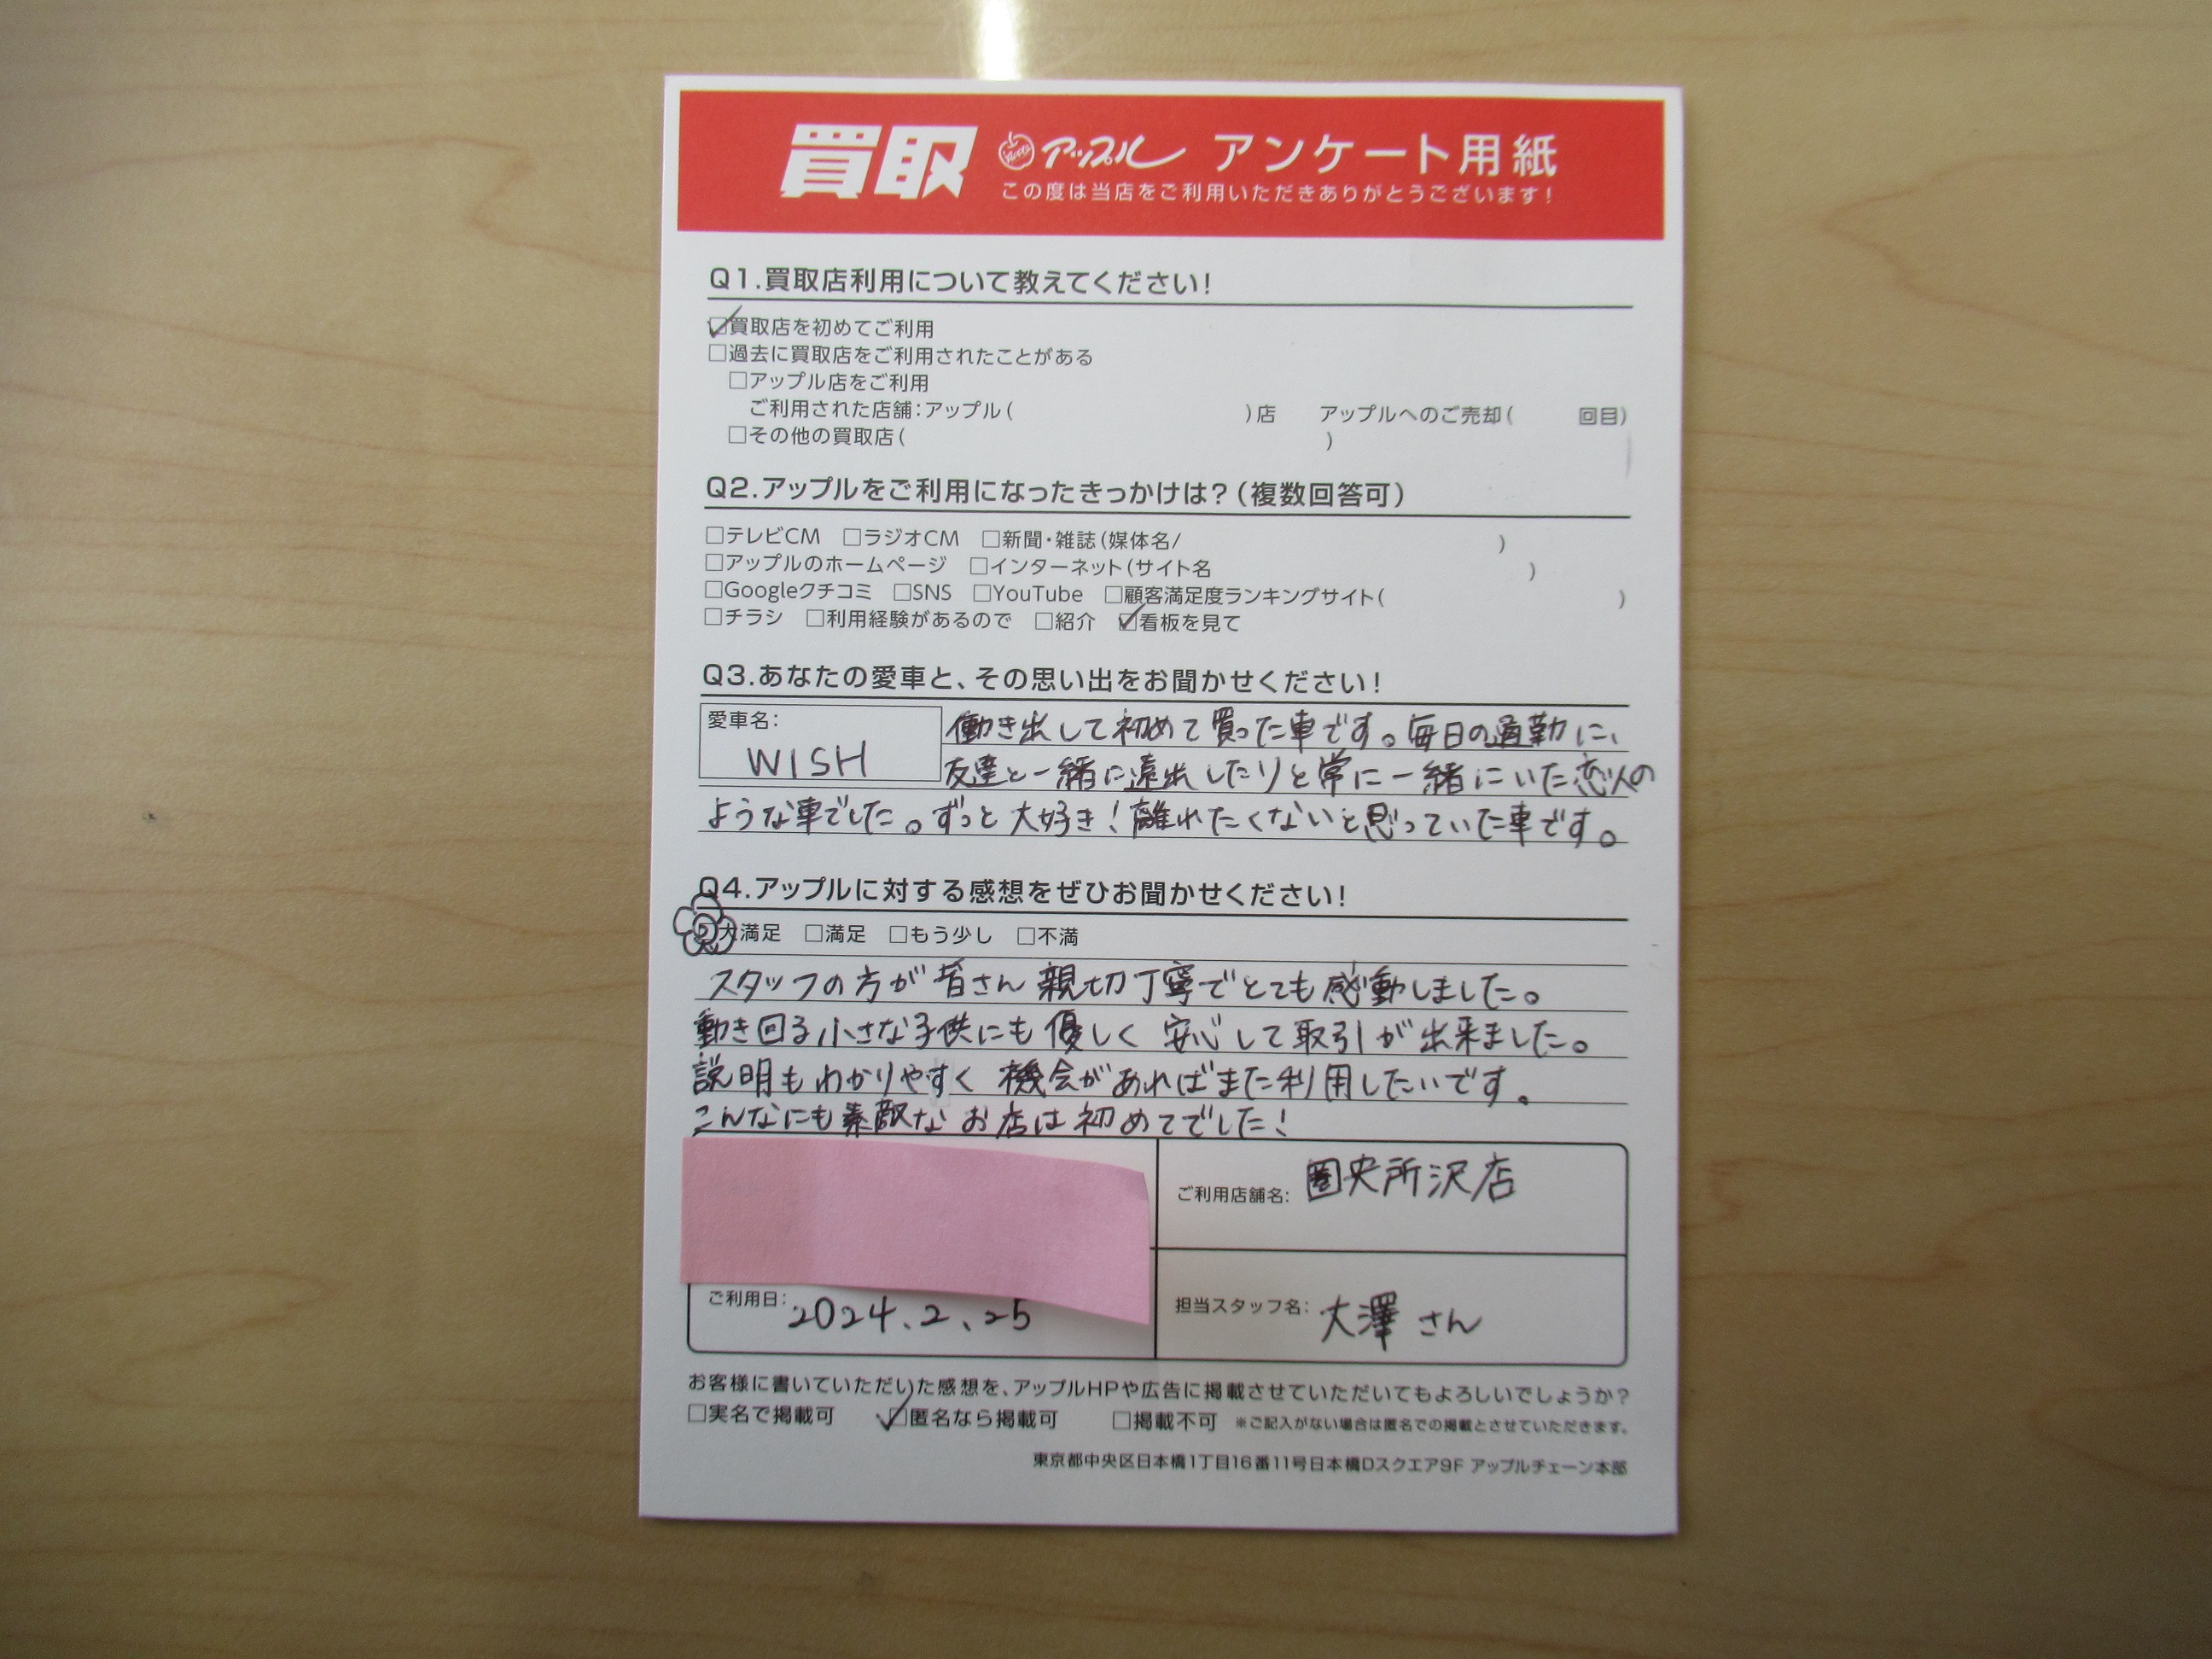 買取 アップル アンケート用紙
この度は当店をご利用いただきありがとうございます!
Q1.買取店利用について教えてください!
☑買取店を初めてご利用
□過去に買取店をご利用されたことがある
□アップル店をご利用
ご利用された店舗:アップル( )店 アップルへのご売却( 回目)
□その他の買取店( )
Q2.アップルをご利用になったきっかけは?(複数回答可)
□テレビCM □ラジオCM □新聞・雑誌(媒体名/ )
□アップルのホームページ □インターネット(サイト名 )
□Googleクチコミ □SNS □YouTube □顧客満足度ランキングサイト( )
□チラシ □利用経験があるので □紹介 ☑看板を見て
Q3.あなたの愛車と、その思い出をお聞かせください!
愛車名: WISH
働き出して初めて買った車です。毎日の通勤に、
友達と一緒に遠出したりと常に一緒にいた恋人の
ような車でした。ずっと大好き!離れたくないと思っていた車です。
Q4.アップルに対する感想をぜひお聞かせください!
大満足 □満足 □もう少し □不満
スタッフの方が皆さん親切丁寧でとても感動しました。
動き回る小さな子供にも優しく安心して取引が出来ました。
説明もわかりやすく機会があればまた利用したいです。
こんなにも素敵なお店は初めてでした!
ご利用店舗名: 圏央所沢店
ご利用日: 2024.2.25
担当スタッフ名: 大澤さん
お客様に書いていただいた感想を、アップルHPや広告に掲載させていただいてもよろしいでしょうか?
□実名で掲載可 ☑匿名なら掲載可 □掲載不可 ※ご記入がない場合は匿名での掲載とさせていただきます。
東京都中央区日本橋1丁目16番11号日本橋Dスクエア9F アップルチェーン本部